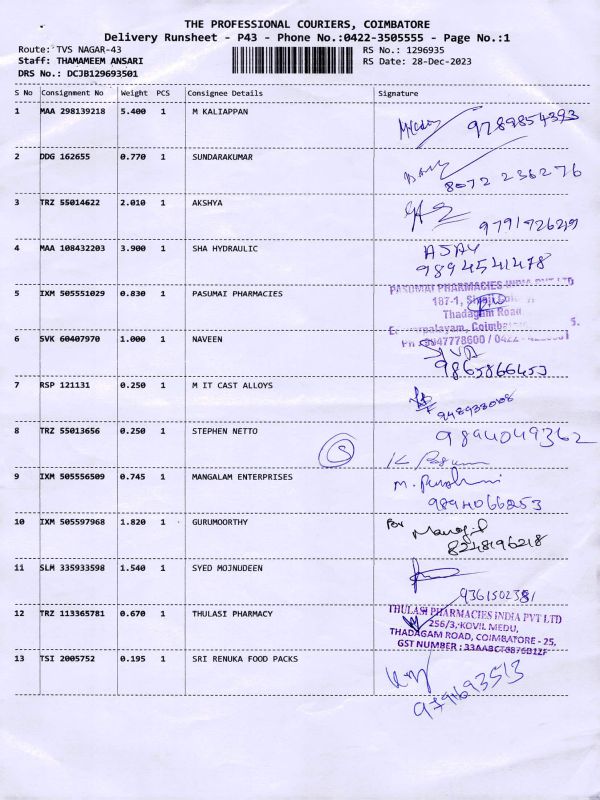 THE PROFESSIONAL COURIERS, COIMBATORE
Delivery Runsheet - P43 - Phone No.:0422-3505555 - Page No.:1
Route: TVS NAGAR-43 RS No.: 1296935
Staff: THAMAMEEM ANSARI RS Date: 28-Dec-2023
DRS No.: DCJB129693501
S No Consignment No Weight PCS Consignee Details Signature
1 MAA 298139218 5.400 1 M KALIAPPAN
9789854393
2 DDG 162655 0.770 1 SUNDARAKUMAR
8072 236276
3 TRZ 55014622 2.010 1 AKSHYA
4 MAA 108432203 3.900 1 SHA HYDRAULIC
AJAY
9894541478
5 IXM 505551029 0.830 1 PASUMAI PHARMACIES
PASUMAI PHARMACIES INDIA PVT LTD
187-1,
Thadagam Road
6 SVK 60407970 1.000 1 NAVEEN
SIVA
9865866453
7 RSP 121131 0.250 1 M IT CAST ALLOYS
8 TRZ 55013656 0.250 1 STEPHEN NETTO
9894049362
S
9 IXM 505556509 0.745 1 MANGALAM ENTERPRISES
9894066253
10 IXM 505597968 1.820 1 GURUMOORTHY
8248196218
11 SLM 335933598 1.540 1 SYED MOJNUDEEN
9361502381
12 TRZ 113365781 0.670 1 THULASI PHARMACY
THULASI PHARMACIES INDIA PVT LTD
256/3, KOVIL MEDU,
THADAGAM ROAD, COIMBATORE - 25.
GST NUMBER :
13 TSI 2005752 0.195 1 SRI RENUKA FOOD PACKS